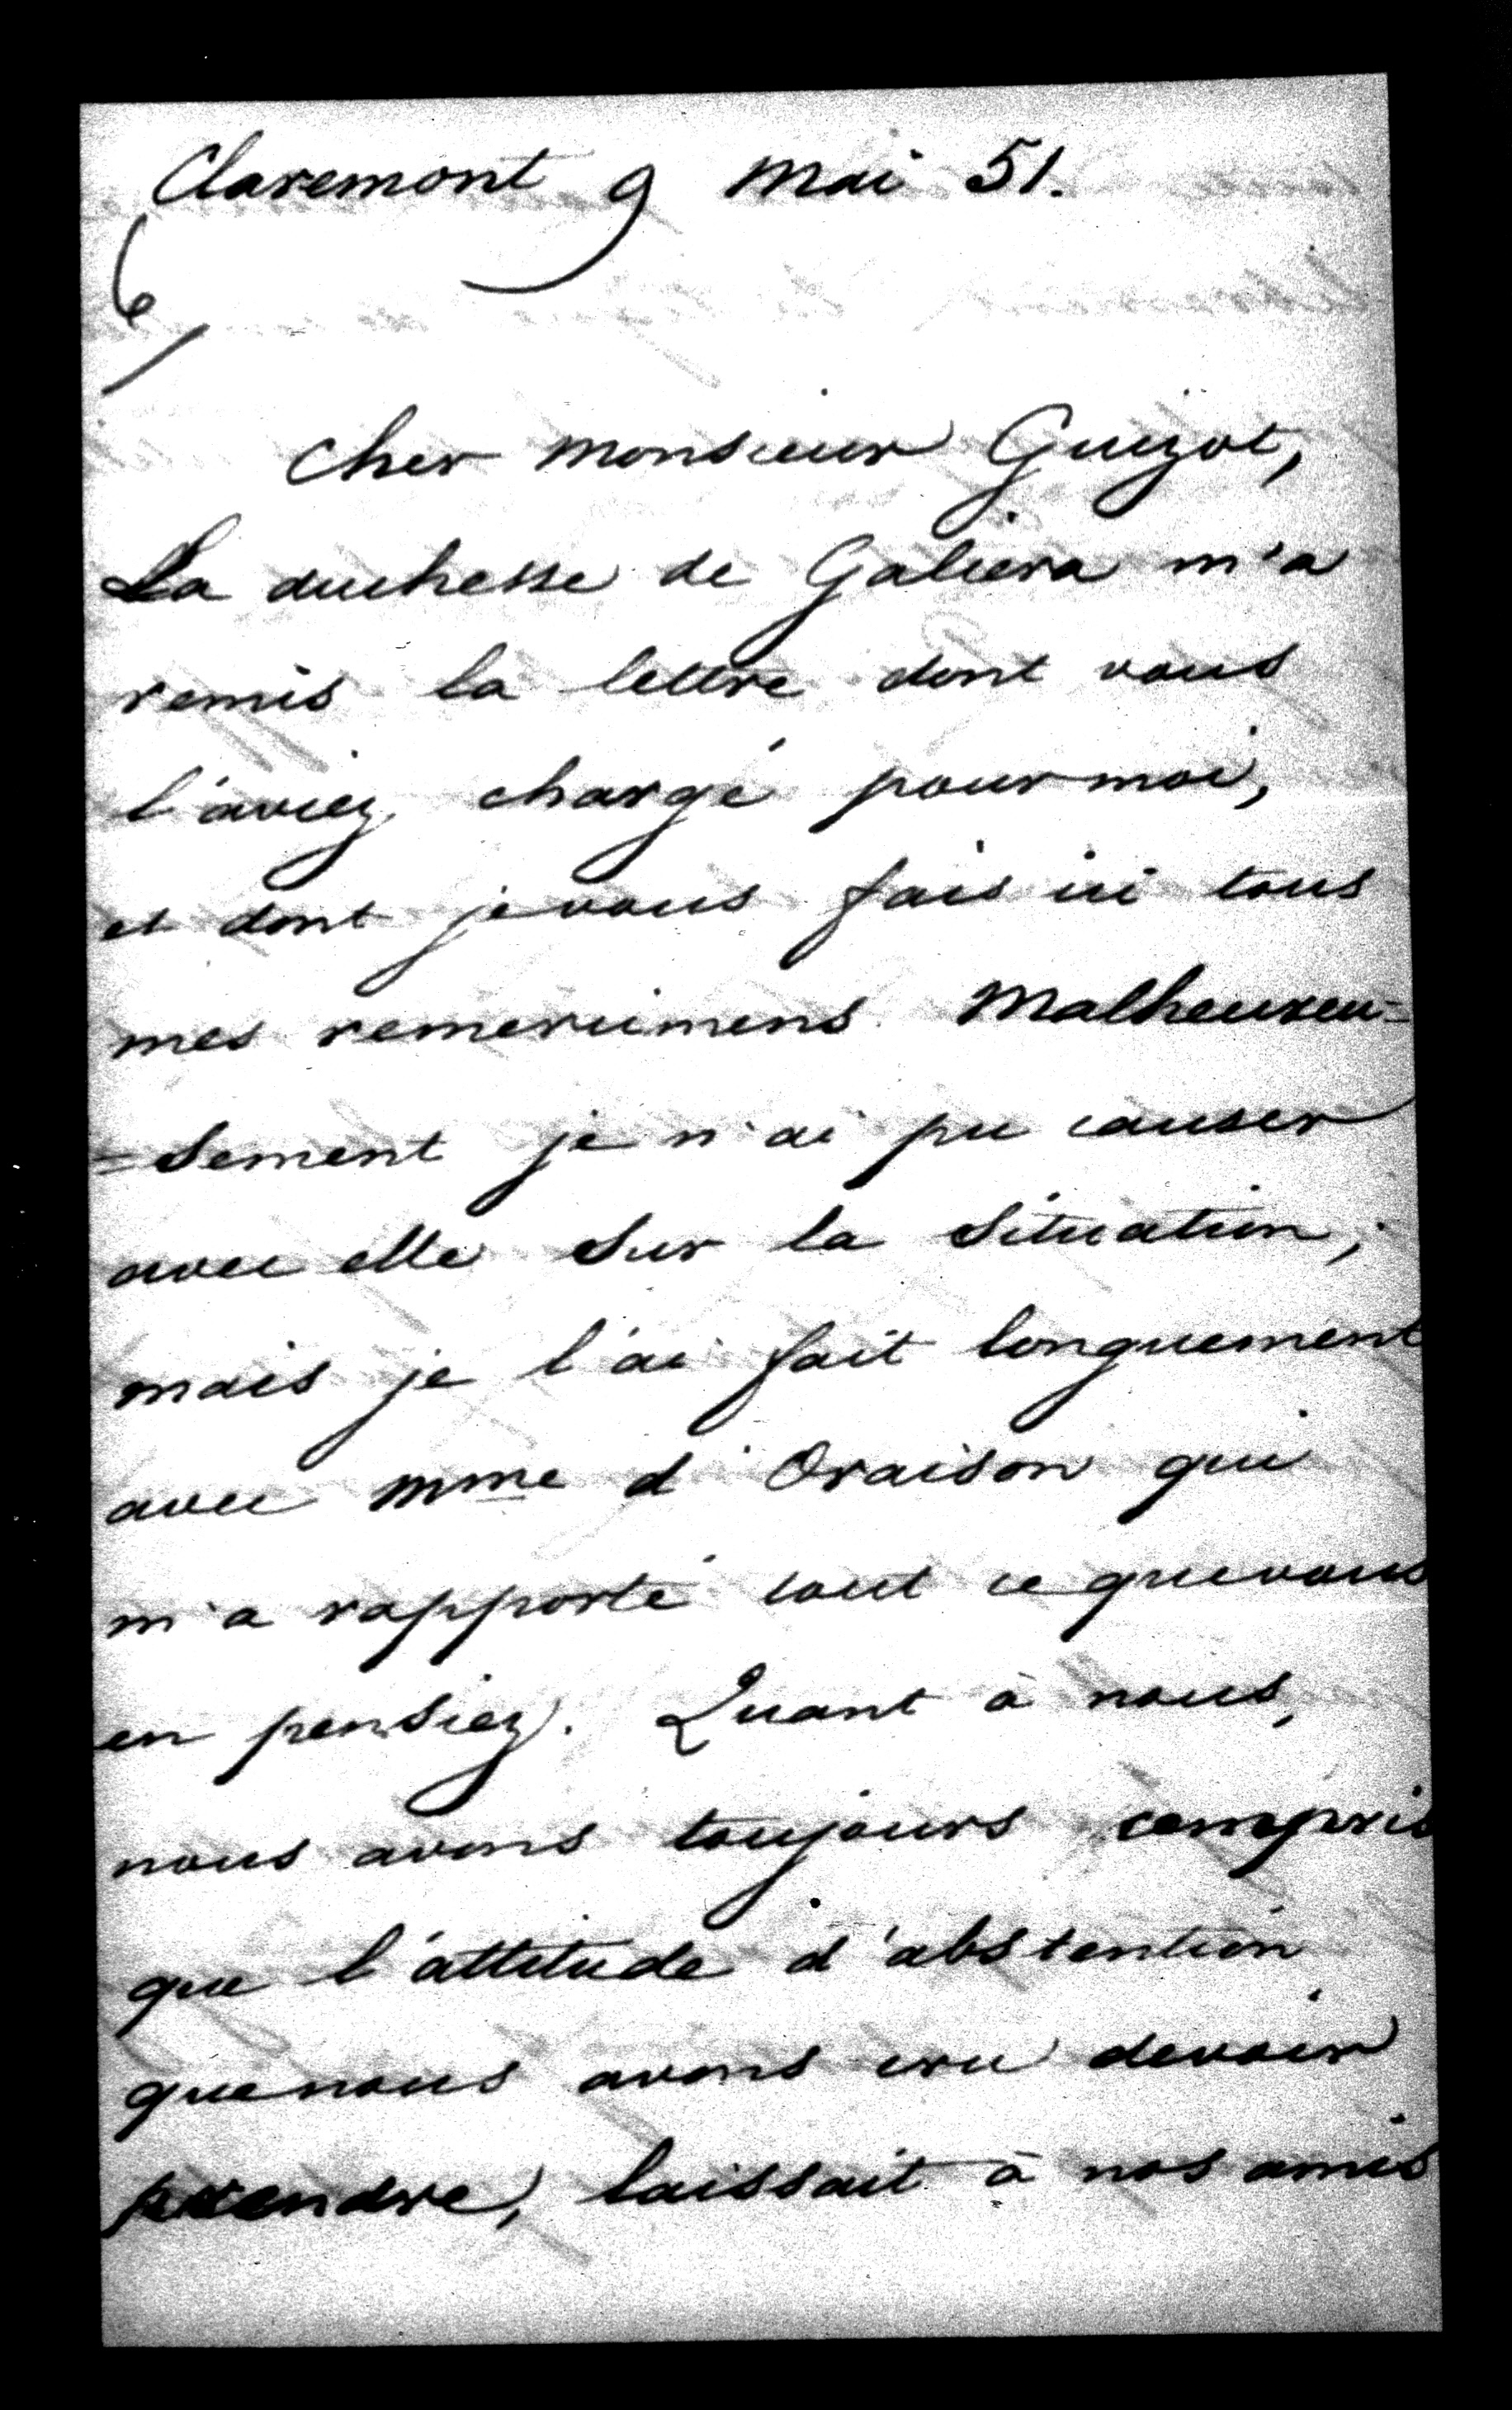 Claremont 9 mai 51.
6/
Cher monsieur Guizot,
La duchesse de Galiera m'a
remis la lettre dont vous
l'aviez chargé pour moi,
et dont je vous fais ici tous
mes remercimens. Malheureu=
=sement je n'ai pu causer
avec elle sur la situation;
mais je l'ai fait longuement
avec Mme d'Oraison qui
m'a rapporté tout ce que vous
en pensiez. Quant à nous,
nous avons toujours compris
que l'attitude d'abstention
que nous avons cru devoir
prendre, laissait à nos amis